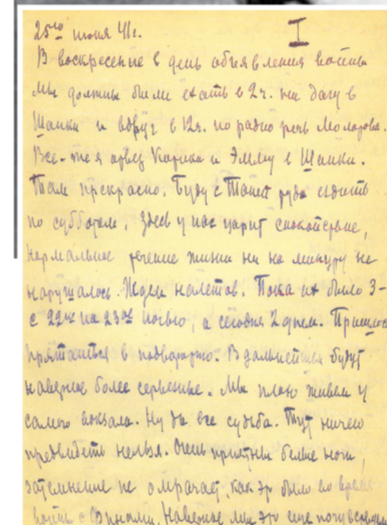 25го июня 41г. I
В воскресение в день объявления войны
мы должны были ехать в 2 ч. на дачу в
Шапки и вдруг в 12 ч. по радио речь Молотова.
Все-же я отвез Карика и Эмму в Шапки.
Там прекрасно. Буду с Таней туда ездить
по субботам. Здесь у нас царит спокойствие,
нормальное течение жизни ни на минуту не
нарушалось. Ждем налетов. Пока их было 3-
с 22го на 23ое ночью, а сегодня 2 днем. Пришлось
прятаться в подворотню. В дальнейшем будут
наверное более серьезные. Мы плохо живем у
самого вокзала. Ну да все судьба. Тут ничего
предвидеть нельзя. Очень приятны белые ночи,
затемнение не омрачает, как это было во время
войны с Финами. Наверное мы это еще почувствуем